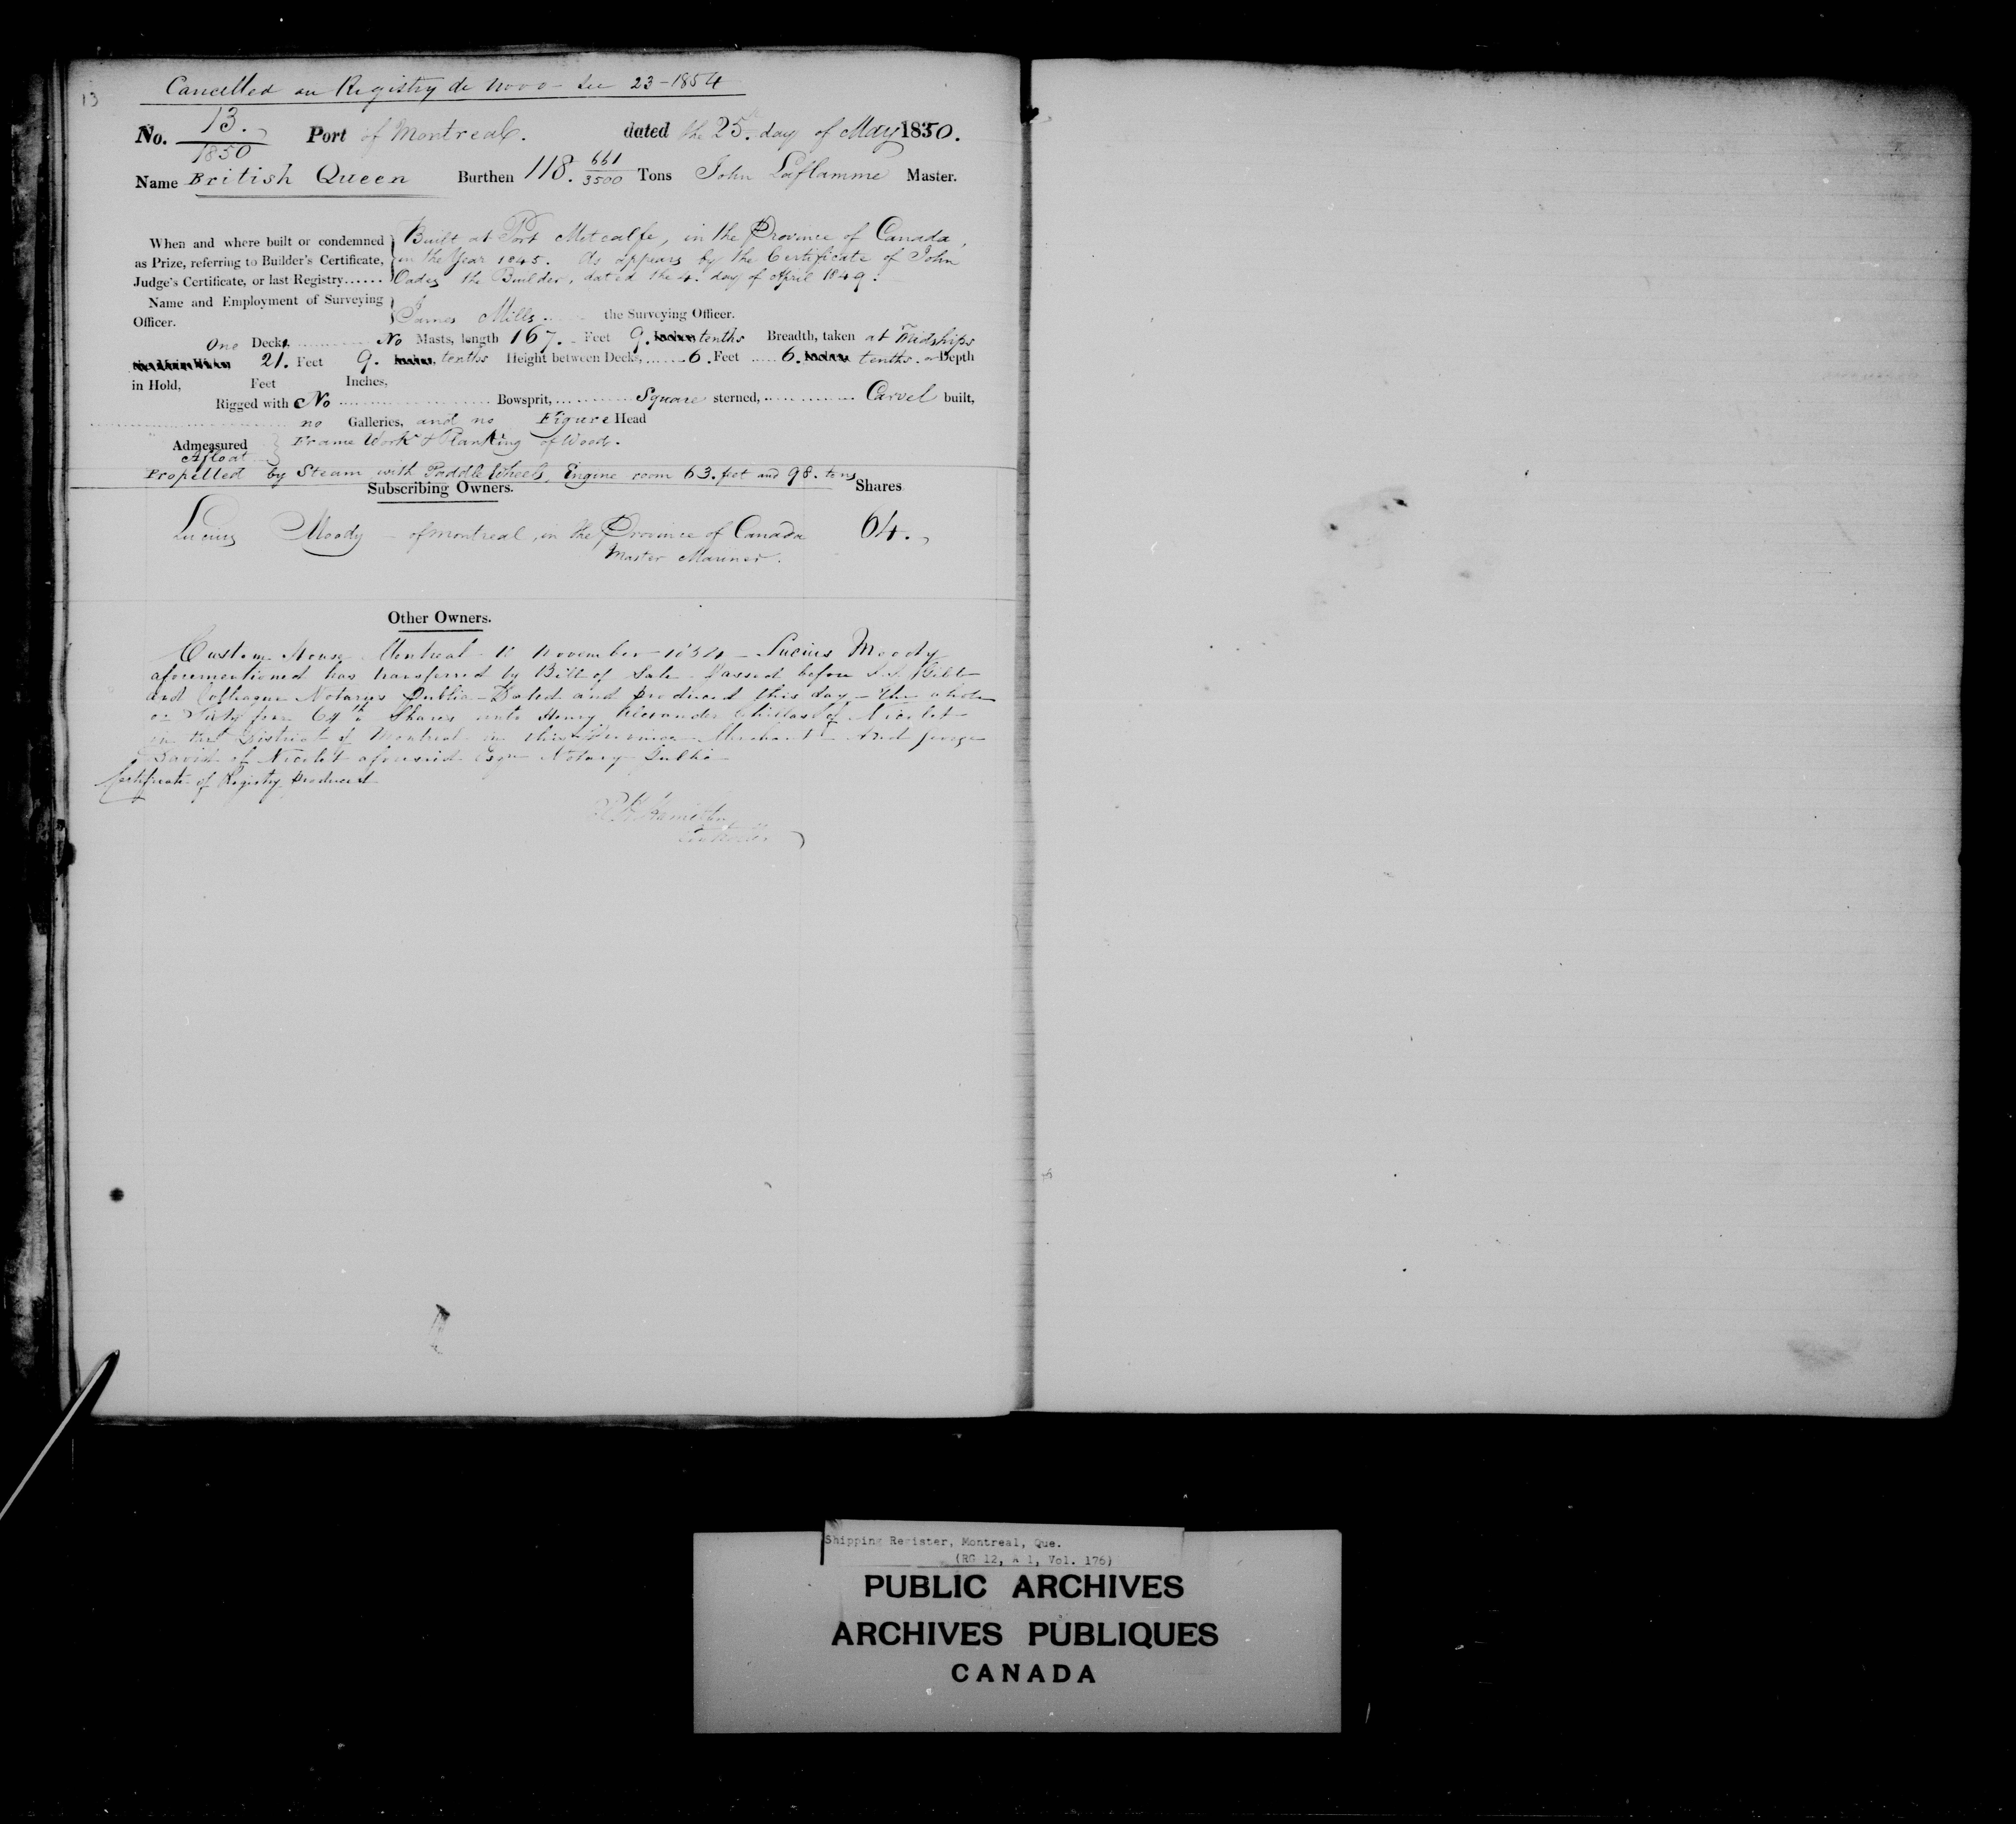 13
Cancelled on Registry de novo - see 23 - 1854
No. 13. / 1850 Port of Montreal. dated the 25th day of May 1850.
Name British Queen Burthen 118. 661/3500 Tons John Laflamme Master.
When and where built or condemned as Prize, referring to Builder's Certificate, Judge's Certificate, or last Registry......
Built at Port Metcalfe, in the Province of Canada,
in the Year 1845. As appears by the Certificate of John
Oades the Builder, dated the 4. day of April 1849.
Name and Employment of Surveying Officer.
James Mills the Surveying Officer.
One Deck, No Masts, length 167. Feet 9. tenths Breadth, taken at Midships
21. Feet 9. tenths Height between Decks, 6. Feet 6. tenths. or Depth
in Hold, Feet Inches,
Rigged with No Bowsprit, Square sterned, Carvel built,
no Galleries, and no Figure Head
Admeasured Afloat
Frame Work & Planking of Wood.
Propelled by Steam with Paddle Wheels, Engine room 63. feet and 98. tons
Subscribing Owners. Shares
Lucius Moody - of Montreal, in the Province of Canada 64.
Master Mariner.
Other Owners.
Custom House Montreal 11 November 1854 - Lucius Moody
aforementioned has transferred by Bill of Sale - Passed before Gibb
and Colleague Notarys Public - Dated and produced this day - the whole
or Sixty four 64th Shares unto Henry Alexander Chillas of Nicolet
in the District of Montreal in this Province Merchant - And George
David of Nicolet aforesaid Esqr Notary Public
Certificate of Registry produced
Hamilton
Shipping Register, Montreal, Que.
(RG 12, A 1, Vol. 176)
PUBLIC ARCHIVES
ARCHIVES PUBLIQUES
CANADA